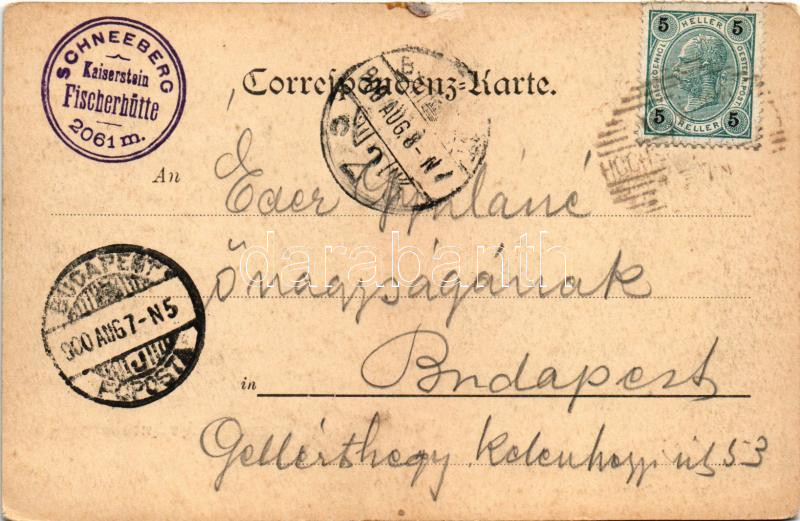 SCHNEEBERG
Kaiserstein
Fischerhütte
2061 m.
Correspondenz-Karte.
5 HELLER 5
5 HELLER 5
900 AUG. 8-N
An Eder Gyuláné
Őnagyságának
BUDAPEST
900 AUG 7-N5
J
FŐPOSTA
in Budapest
Gellérthegy Kelenhegyi út 53
darabanth